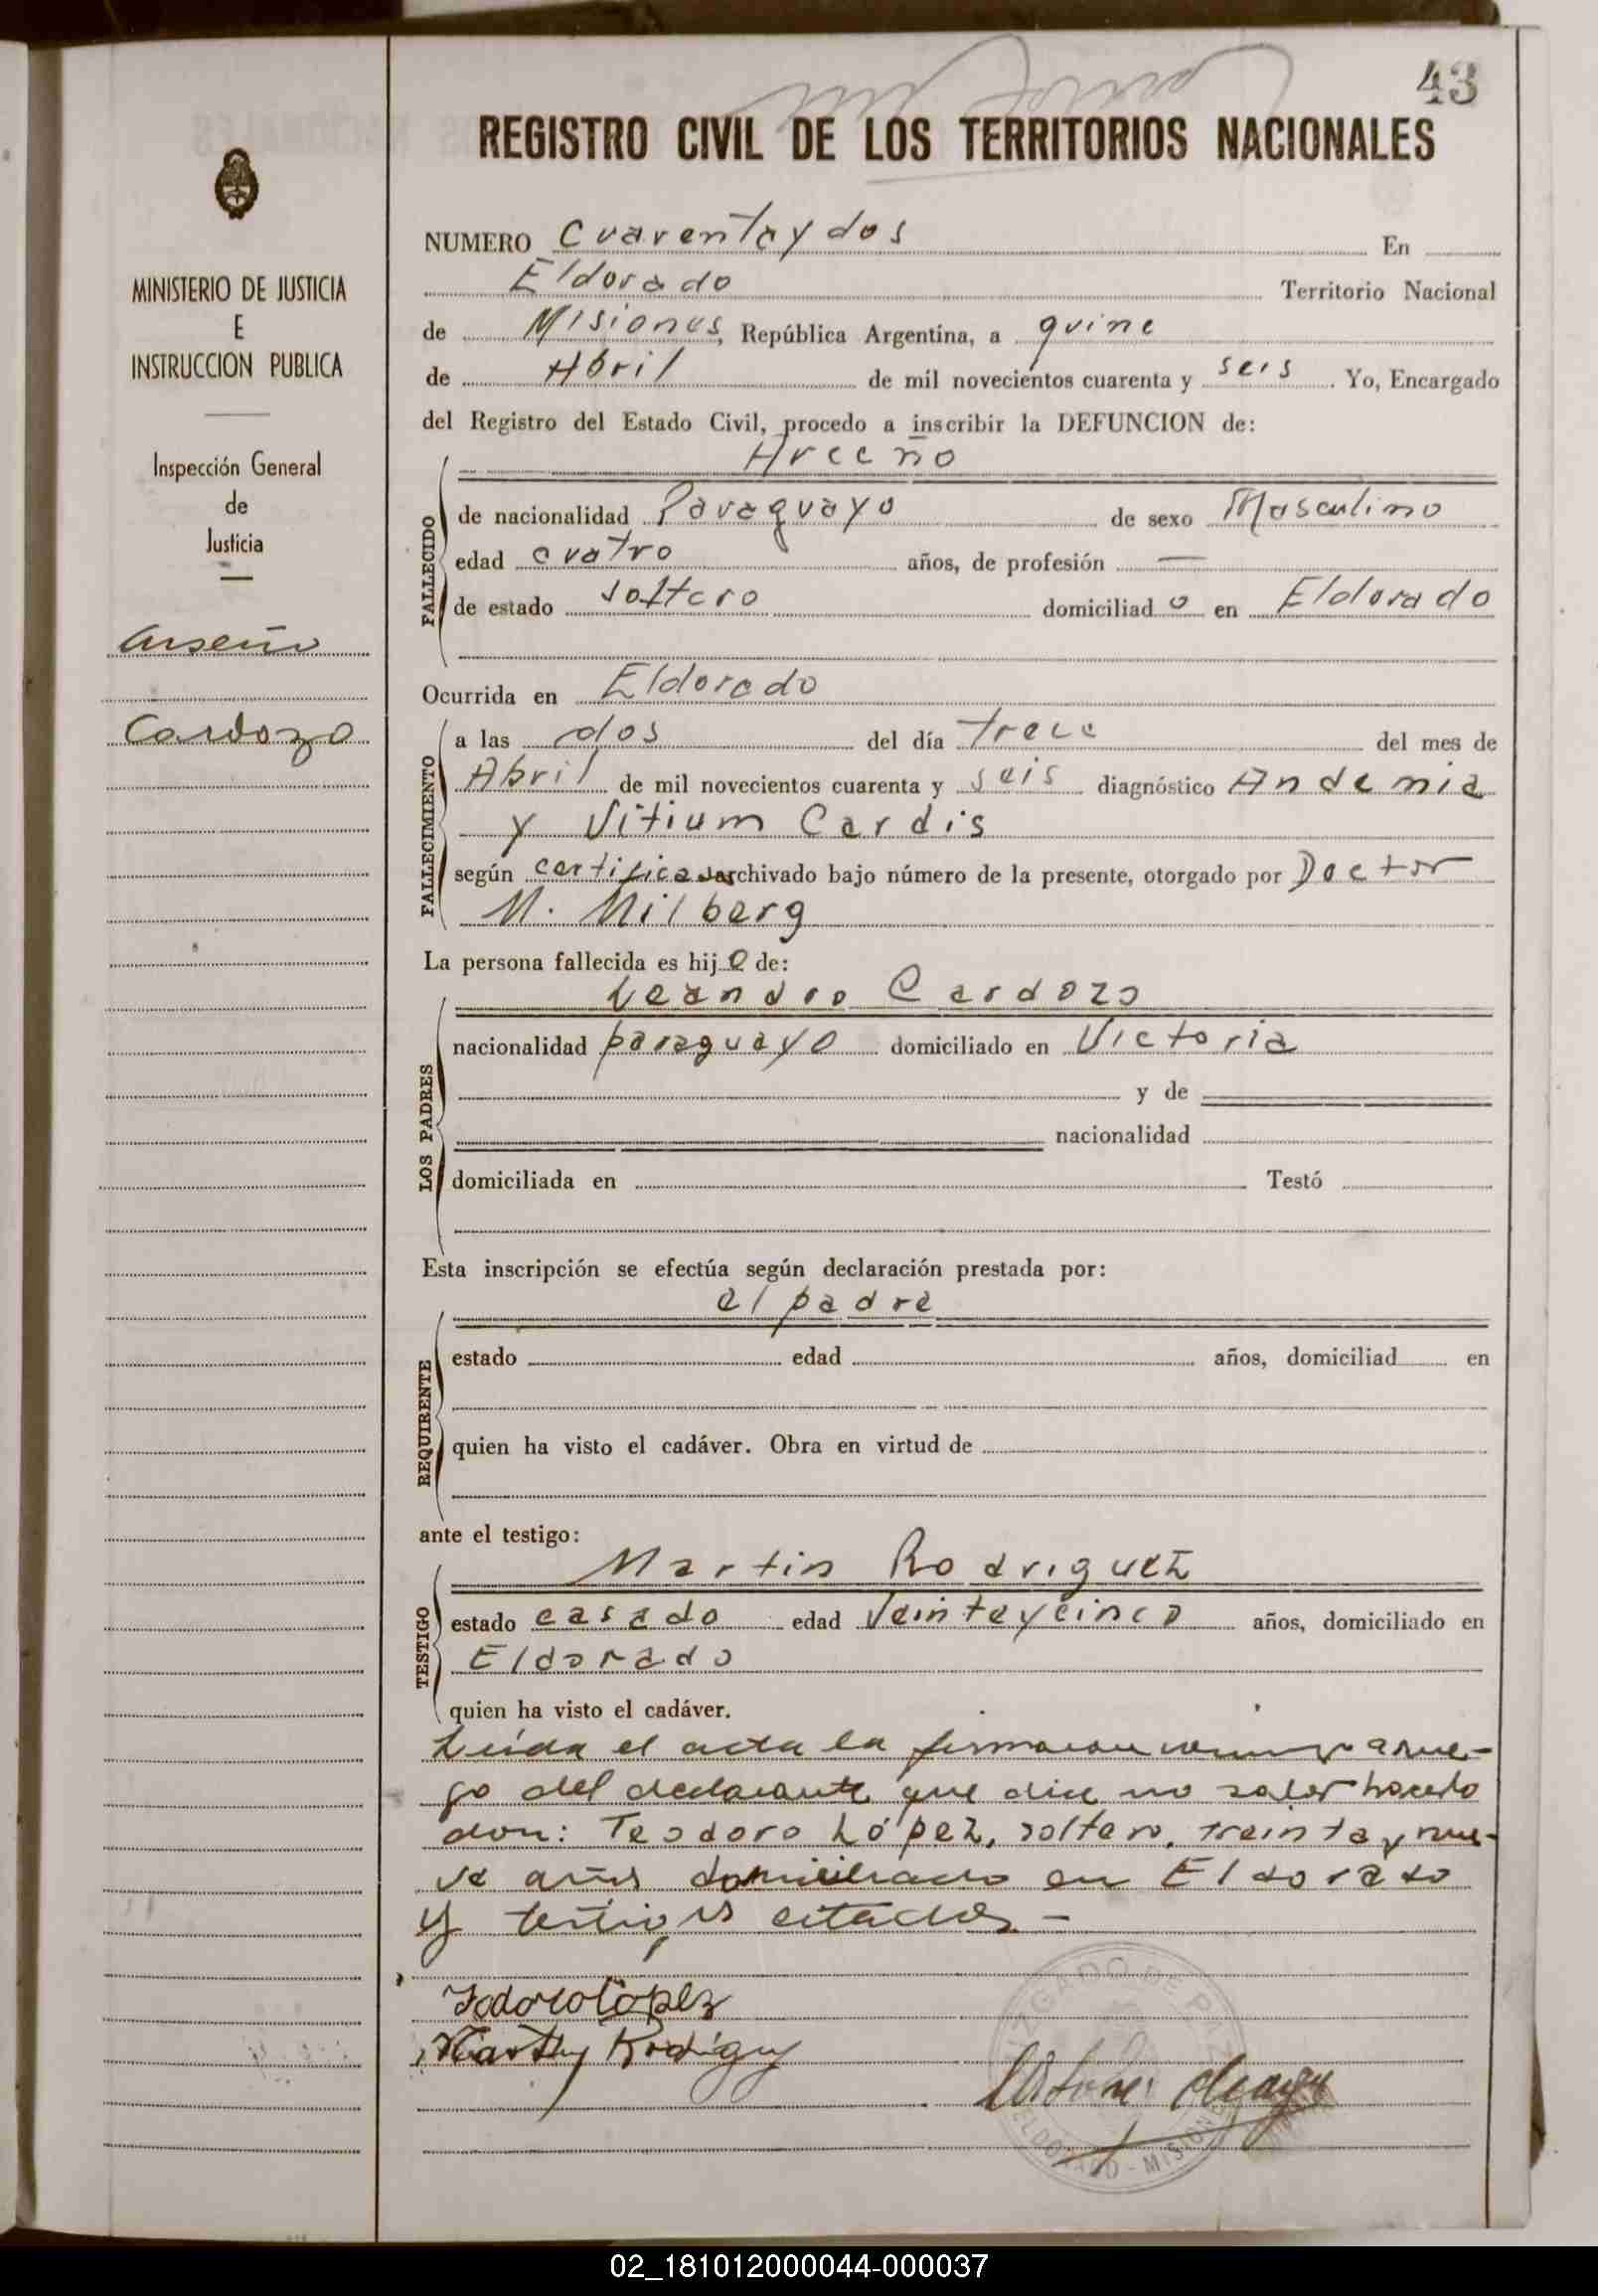 43
REGISTRO CIVIL DE LOS TERRITORIOS NACIONALES
MINISTERIO DE JUSTICIA
E
INSTRUCCION PUBLICA
Inspección General
de
Justicia
Arseño
Cardozo
NUMERO Cuarentaydos En
Eldorado Territorio Nacional
de Misiones, República Argentina, a quinc
de Abril de mil novecientos cuarenta y seis. Yo, Encargado
del Registro del Estado Civil, procedo a inscribir la DEFUNCION de:
Arceño
FALLECIDO
de nacionalidad Paraguayo de sexo Masculino
edad cuatro años, de profesión —
de estado soltero domiciliado en Eldorado
Ocurrida en Eldorado
FALLECIMIENTO
a las dos del día trece del mes de
Abril de mil novecientos cuarenta y seis diagnóstico Andemia
y Vitium Cardis
según certificado archivado bajo número de la presente, otorgado por Doctor
M. Milberg
La persona fallecida es hijo de:
LOS PADRES
Leandro Cardozo
nacionalidad paraguayo domiciliado en Victoria
y de
nacionalidad
domiciliada en Testó
Esta inscripción se efectúa según declaración prestada por:
el padre
REQUIRENTE
estado edad años, domiciliad en
quien ha visto el cadáver. Obra en virtud de
ante el testigo:
TESTIGO
Martin Rodriguez
estado casado edad Veinteycinco años, domiciliado en
Eldorado
quien ha visto el cadáver.
Leida el acta la firmaron a rue-
go del declarante que dice no saber hacerlo
don: Teodoro López, soltero, treinta y nue-
ve años domiciliado en Eldorado
y testigos citados —
Todoro López
JUZGADO DE PAZ
ELDORADO - MISIONES
02_181012000044-000037